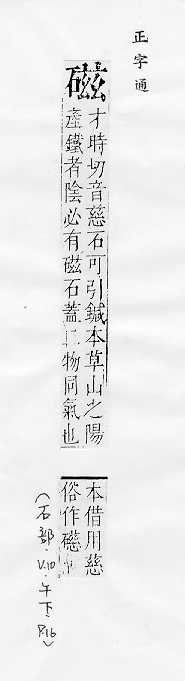 正字通
磁
才時切音慈石可引鍼本草山之陽
產鐵者陰必有磁石蓋二物同氣也
本借用慈
俗作礠
(石部.V.10.午下.P.16)